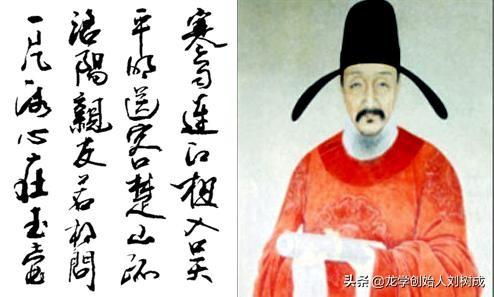 寒雨連江夜入吴
平明送客楚山孤
洛陽親友若相問
一片冰心在玉壺
头条 @龙学创始人刘树成